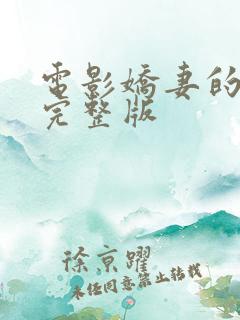 電影嬌妻的
完整版
徐京躍
未经同意禁止转载